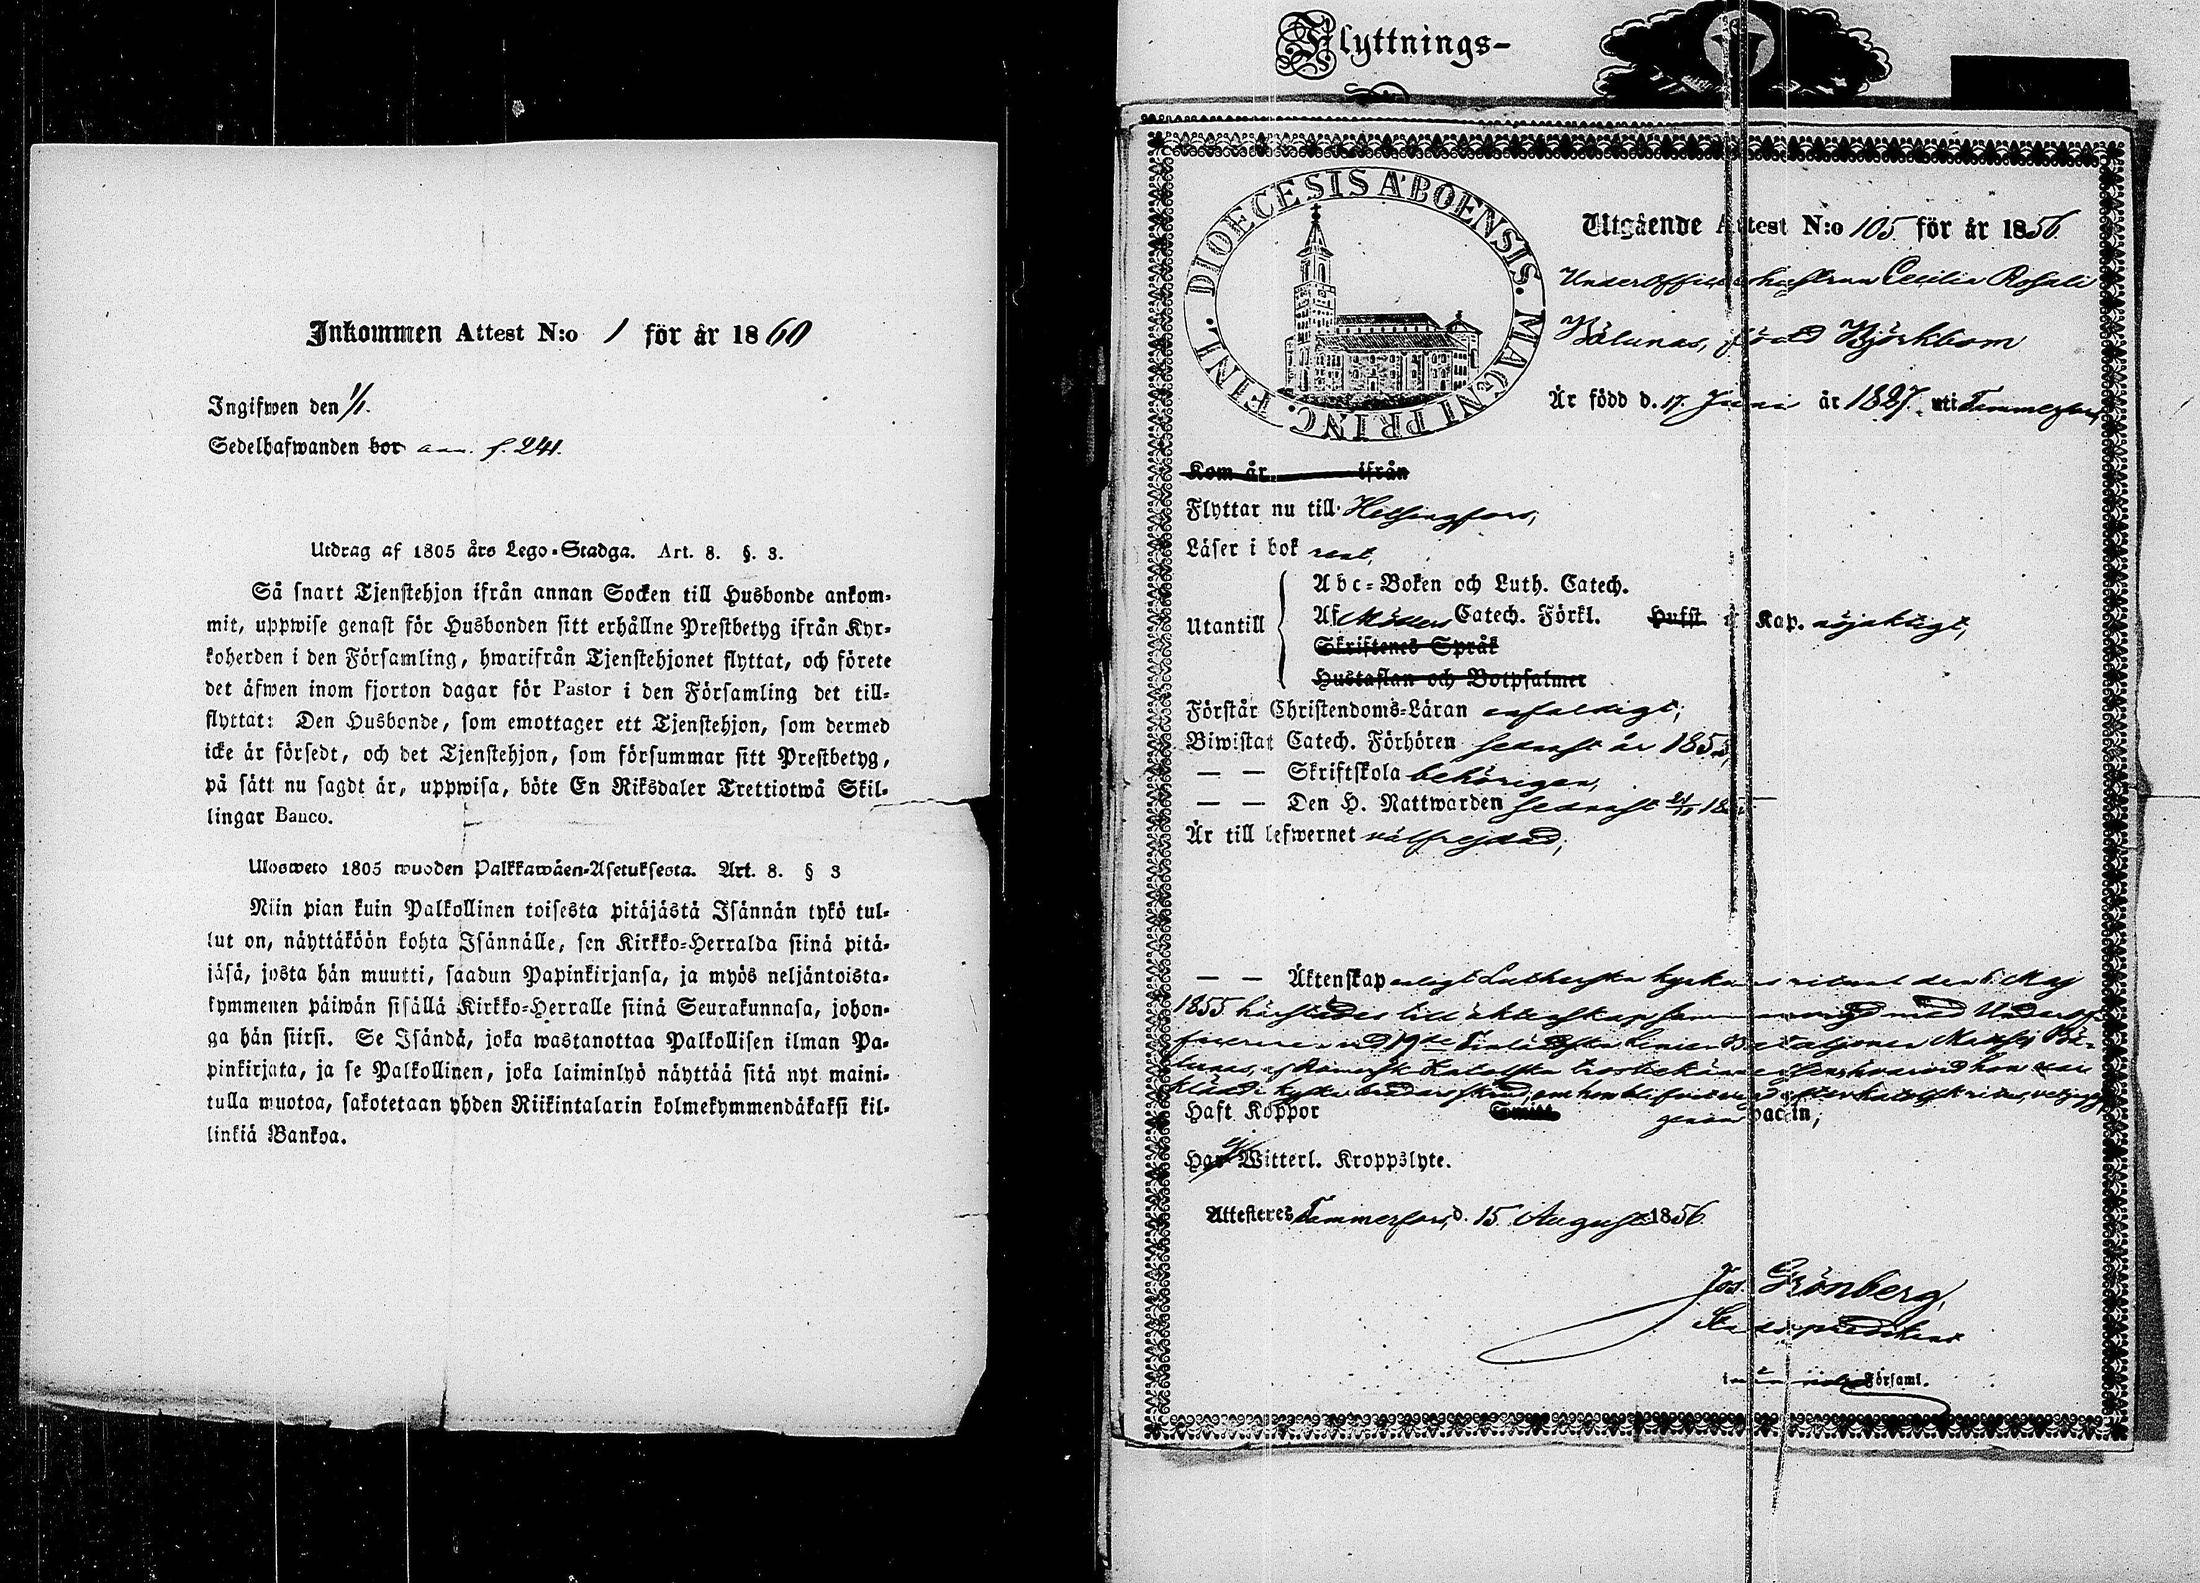 Inkommen Attest N:o 1 för år 1860
Ingifwen den 1/1.
Sedelhafwanden bor ann. f. 241.
Utdrag af 1805 års Lego-Stadga. Art. 8. §. 3.
Så snart Tjenstehjon ifrån annan Socken till Husbonde ankom-
mit, uppwise genast för Husbonden sitt erhållne Prestbetyg ifrån Kyr-
koherden i den Församling, hwarifrån Tjenstehjonet flyttat, och förete
det äfwen inom fjorton dagar för Pastor i den Församling det till-
flyttat: Den Husbonde, som emottager ett Tjenstehjon, som dermed
icke är försedt, och det Tjenstehjon, som försummar sitt Prestbetyg,
på sätt nu sagdt är, uppwisa, böte En Riksdaler Trettiotwå Skil-
lingar Banco.
Ulosweto 1805 wuoden Palkkawäen-Asetuksesta. Art. 8. § 3
Niin pian kuin Palkollinen toisesta pitäjästä Isännän tykö tul-
lut on, näyttäköön kohta Isännälle, sen Kirkko-Herralda siinä pitä-
jäsä, josta hän muutti, saadun Papinkirjansa, ja myös neljäntoista-
kymmenen päiwän sisällä Kirkko-Herralle siinä Seurakunnasa, johon-
ga hän siirsi. Se Isändä, joka wastanottaa Palkollisen ilman Pa-
pinkirjata, ja se Palkollinen, joka laiminlyö näyttää sitä nyt maini-
tulla muotoa, sakotetaan yhden Riikintalarin kolmekymmendäkaksi kil-
linkiä Bankoa.
Flyttnings-
DIOECESIS ABOENSIS. MAGNI PRINC. FINL.
Utgående Attest N:o 105 för år 1856
Underofficershustrun Cecilia Rosali
Bölunas, född Björkbom
Är född d. 17. Juni år 1827. uti Tammerfors
Kom år ifrån
Flyttar nu till Helsingfors,
Läser i bok rent,
Utantill
Abc-Boken och Luth. Catech.
Af Möllers Catech. Förkl. Hufst. Kap. nöjaktigt,
Skriftenes Språk
Hustaflan och Botpsalmer
Förstår Christendoms-Läran enfaldigt,
Biwistat Catech. Förhören senast år 1855,
— — Skriftskola behörigen,
— — Den H. Nattwarden senast
Är till lefwernet välfrejdad,
— — Äktenskap enligt Lutherska kyrkans ritual den 6. Maj
1855 härstädes till äktenskap med Underof-
Finländska Linier Bataljonen
Katolska hvarvid hon
Haft Koppor Smitt genom vaccin,
Har Witterl. Kroppslyte.
Attesteres Tammerfors, d. 15 Augusti 1856
Jos. Grönberg,
Stadspredikant
i Församl.